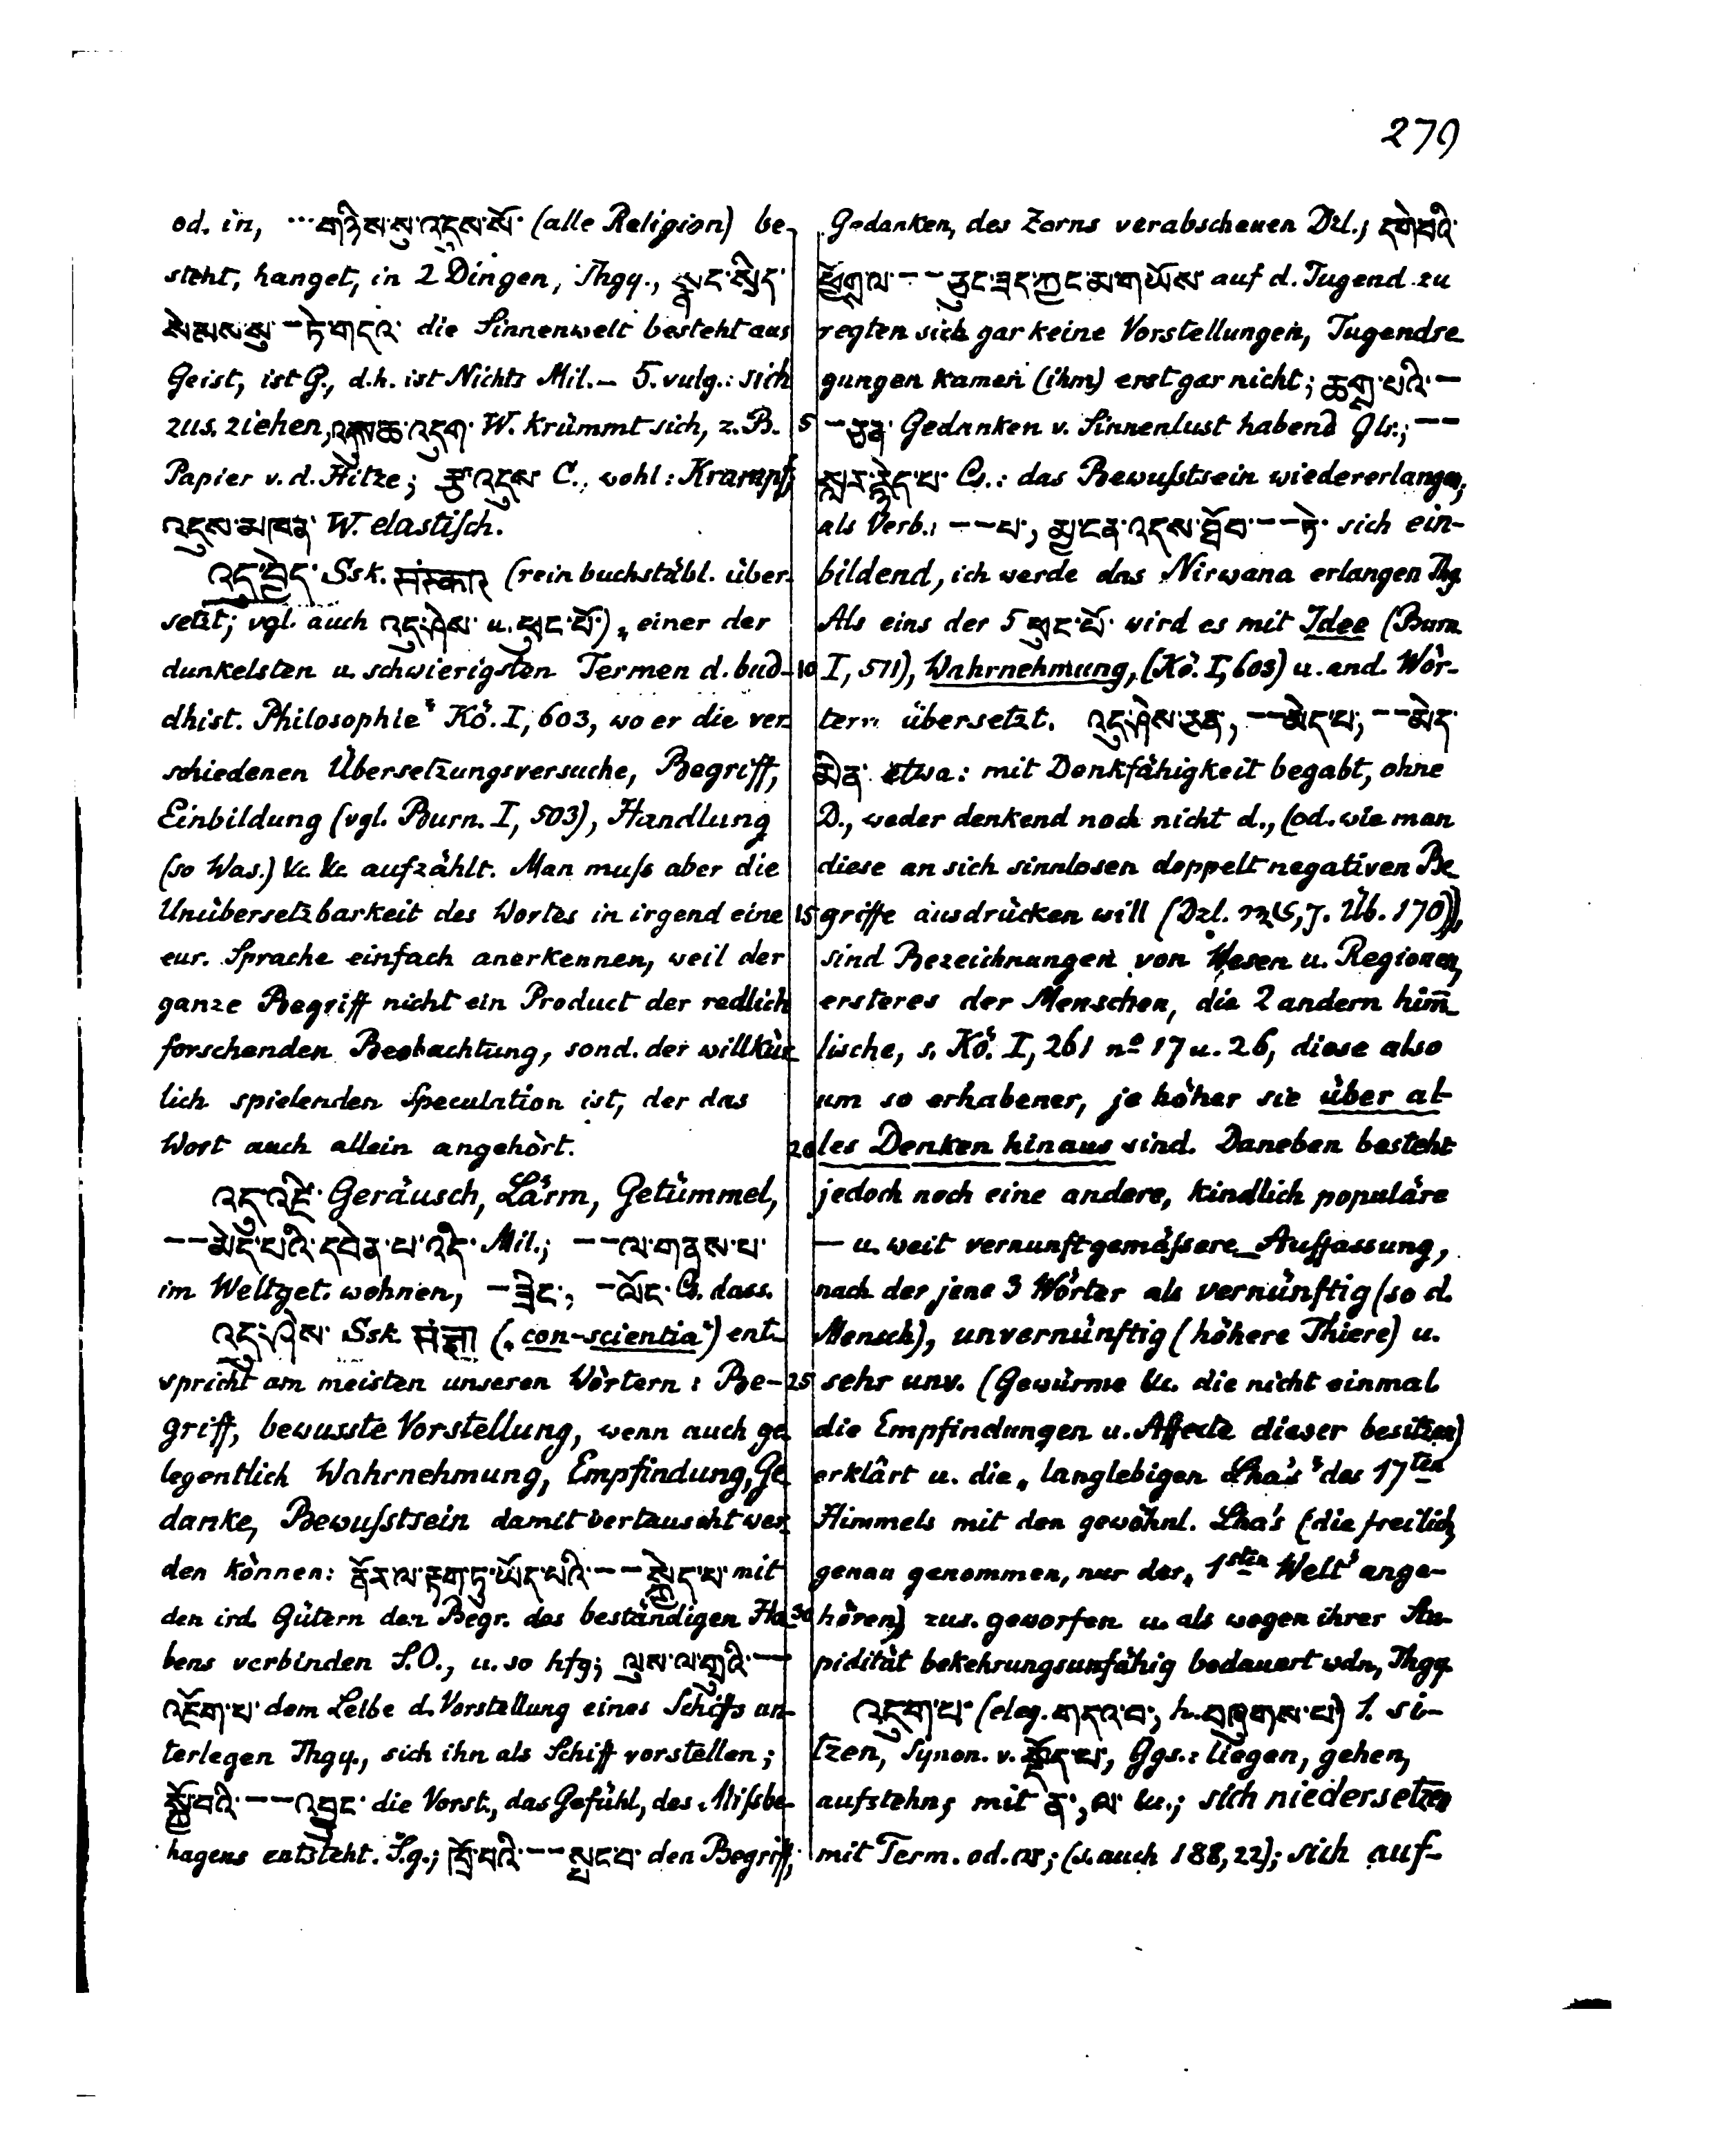 279
od. in, ··· གཉིས་སུ་འདུས་སོ་ (alle Religion) be-
steht, hanget, in 2 Dingen, Thgy., སྣང་སྲིད་
སེམས་སུ་ — ཏེ་གདའ་ die Sinnenwelt besteht aus
Geist, ist G., d.h. ist Nichts Mil. — 5. vulg.: sich
zus. ziehen, འདུག W. krümmt sich, z. B.
Papier v. d. Hitze; རྩ་འདུས C., wohl: Krampf;
འདུས་མཁན་ W. elastisch.
འདུ་བྱེད་ Ssk. संस्कार (rein buchstäbl. über-
setzt; vgl. auch འདུ་ཤེས་ u. ཕུང་པོ་) „einer der
dunkelsten u. schwierigsten Termen d. bud-
dhist. Philosophie“ Kö. I, 603, wo er die ver-
schiedenen Übersetzungsversuche, Begriff,
Einbildung (vgl. Burn. I, 503), Handlung
(so Was.) &c. &c. aufzählt. Man muſs aber die
Unübersetzbarkeit des Wortes in irgend eine
eur. Sprache einfach anerkennen, weil der
ganze Begriff nicht ein Product der redlich
forschenden Beobachtung, sond. der willkür-
lich spielenden Speculation ist, der das
Wort auch allein angehört.
འདུ་འཛི་ Geräusch, Lärm, Getümmel,
— — མེད་པའི་དབེན་པ་འདི་ Mil.; — — ལ་གནས་པ་
im Weltget. wohnen, — ཟིང་, — ལོང་ Cs. dass.
འདུ་ཤེས་ Ssk. संज्ञा („con-scientia“) ent-
spricht am meisten unseren Wörtern: Be-
griff, bewusste Vorstellung, wenn auch ge-
legentlich Wahrnehmung, Empfindung, Ge-
danke, Bewuſstsein damit vertauscht wer-
den können: ནོར་ལ་རྟག་ཏུ་ཡོད་པའི་ — — སྐྱེད་པ་ mit
den ird. Gütern den Begr. des beständigen Ha-
bens verbinden S.O., u. so hfg; ལུས་ལ་གྲུའི་ —
འཇོག་པ་ dem Leibe d. Vorstellung eines Schiffs un-
terlegen Thgy., sich ihn als Schiff vorstellen;
སྐྱོ་བའི་ — — འབྱུང་ die Vorst., das Gefühl, des Miſsbe-
hagens entsteht. S.g.; ཁྲོ་བའི་ — — སྤང་བ་ den Begriff,
Gedanken, des Zorns verabscheuen Dzl.; དགེ་བའི་
ཕྱོགས་ལ་ — — ཅུང་ཟད་ཀྱང་མ་གཡོས་ auf d. Tugend zu
regten sich gar keine Vorstellungen, Tugendre-
gungen kamen (ihm) erst gar nicht; ཆགས་པའི་ —
5 — ཅན་ Gedanken v. Sinnenlust habend Glr.; — —
སླར་རྙེད་པ་ Cs.: das Bewuſstsein wiedererlangen;
als Verb.: — — པ་, མྱ་ངན་འདས་ཐོབ་ — — ཏེ་ sich ein-
bildend, ich werde das Nirwana erlangen Thg.
Als eins der 5 ཕུང་པོ་ wird es mit Idee (Burn.
10 I, 511), Wahrnehmung, (Kö. I, 603) u. and. Wör-
tern übersetzt. འདུ་ཤེས་ཅན་, — — མེད་པ་, — — མེད་
མིན་ etwa: mit Denkfähigkeit begabt, ohne
D., weder denkend noch nicht d., (od. wie man
diese an sich sinnlosen doppelt negativen Be-
15 griffe ausdrücken will (Dzl. 7. Üb. 170)),
sind Bezeichnungen von Wesen u. Regionen,
ersteres der Menschen, die 2 andern him̅-
lische, s. Kö. I, 261 nº 17 u. 26, diese also
um so erhabener, je höher sie über al-
20 les Denken hinaus sind. Daneben besteht
jedoch noch eine andere, kindlich populäre
— u. weit vernunftgemäſsere — Auffassung,
nach der jene 3 Wörter als vernünftig (so d.
Mensch), unvernünftig (höhere Thiere) u.
25 sehr unv. (Gewürme &c. die nicht einmal
die Empfindungen u. Affecte dieser besitzen)
erklärt u. die „langlebigen Lha's“ des 17ten
Himmels mit den gewöhnl. Lha's (die freilich,
genau genommen, nur der „1sten Welt“ ange-
30 hören) zus. geworfen u. als wegen ihrer Stu-
pidität bekehrungsunfähig bedauert wdn, Thgy.
འདུག་པ་ (eleg. གདའ་བ་, h. བཞུགས་པ་) 1. si-
tzen, Synon. v. སྡོད་པ་, Ggs.: liegen, gehen,
aufstehn; mit ན་, ལ་ &c.; sich niedersetzen
mit Term. od. ལ; (s. auch 188, 22); sich auf-